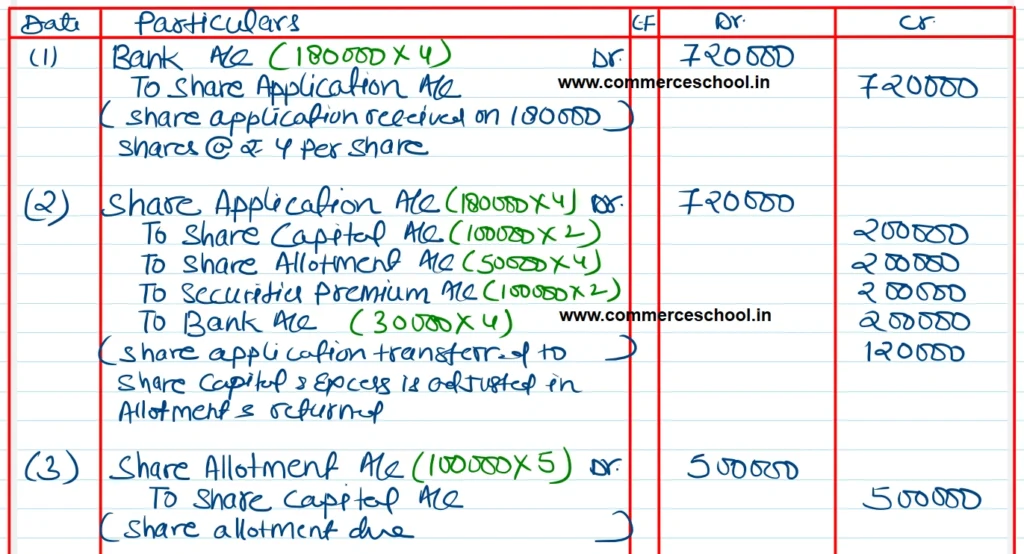 Date Particulars LF Dr. Cr.
(1) Bank A/c (180000 x 4) Dr. 720000
To Share Application A/c www.commerceschool.in 720000
(Share application received on 180000)
Shares @ ₹ 4 per share
(2) Share Application A/c (180000 x 4) Dr. 720000
To Share Capital A/c (100000 x 2) 200000
To Share Allotment A/c (50000 x 4) 200000
To Securities Premium A/c (100000 x 2) 200000
To Bank A/c (30000 x 4) www.commerceschool.in 200000
(Share application transferred to) 120000
Share Capital & Excess is adjusted in
Allotment & returned
(3) Share Allotment A/c (100000 x 5) Dr. 500000
To Share Capital A/c 500000
(Share allotment due)